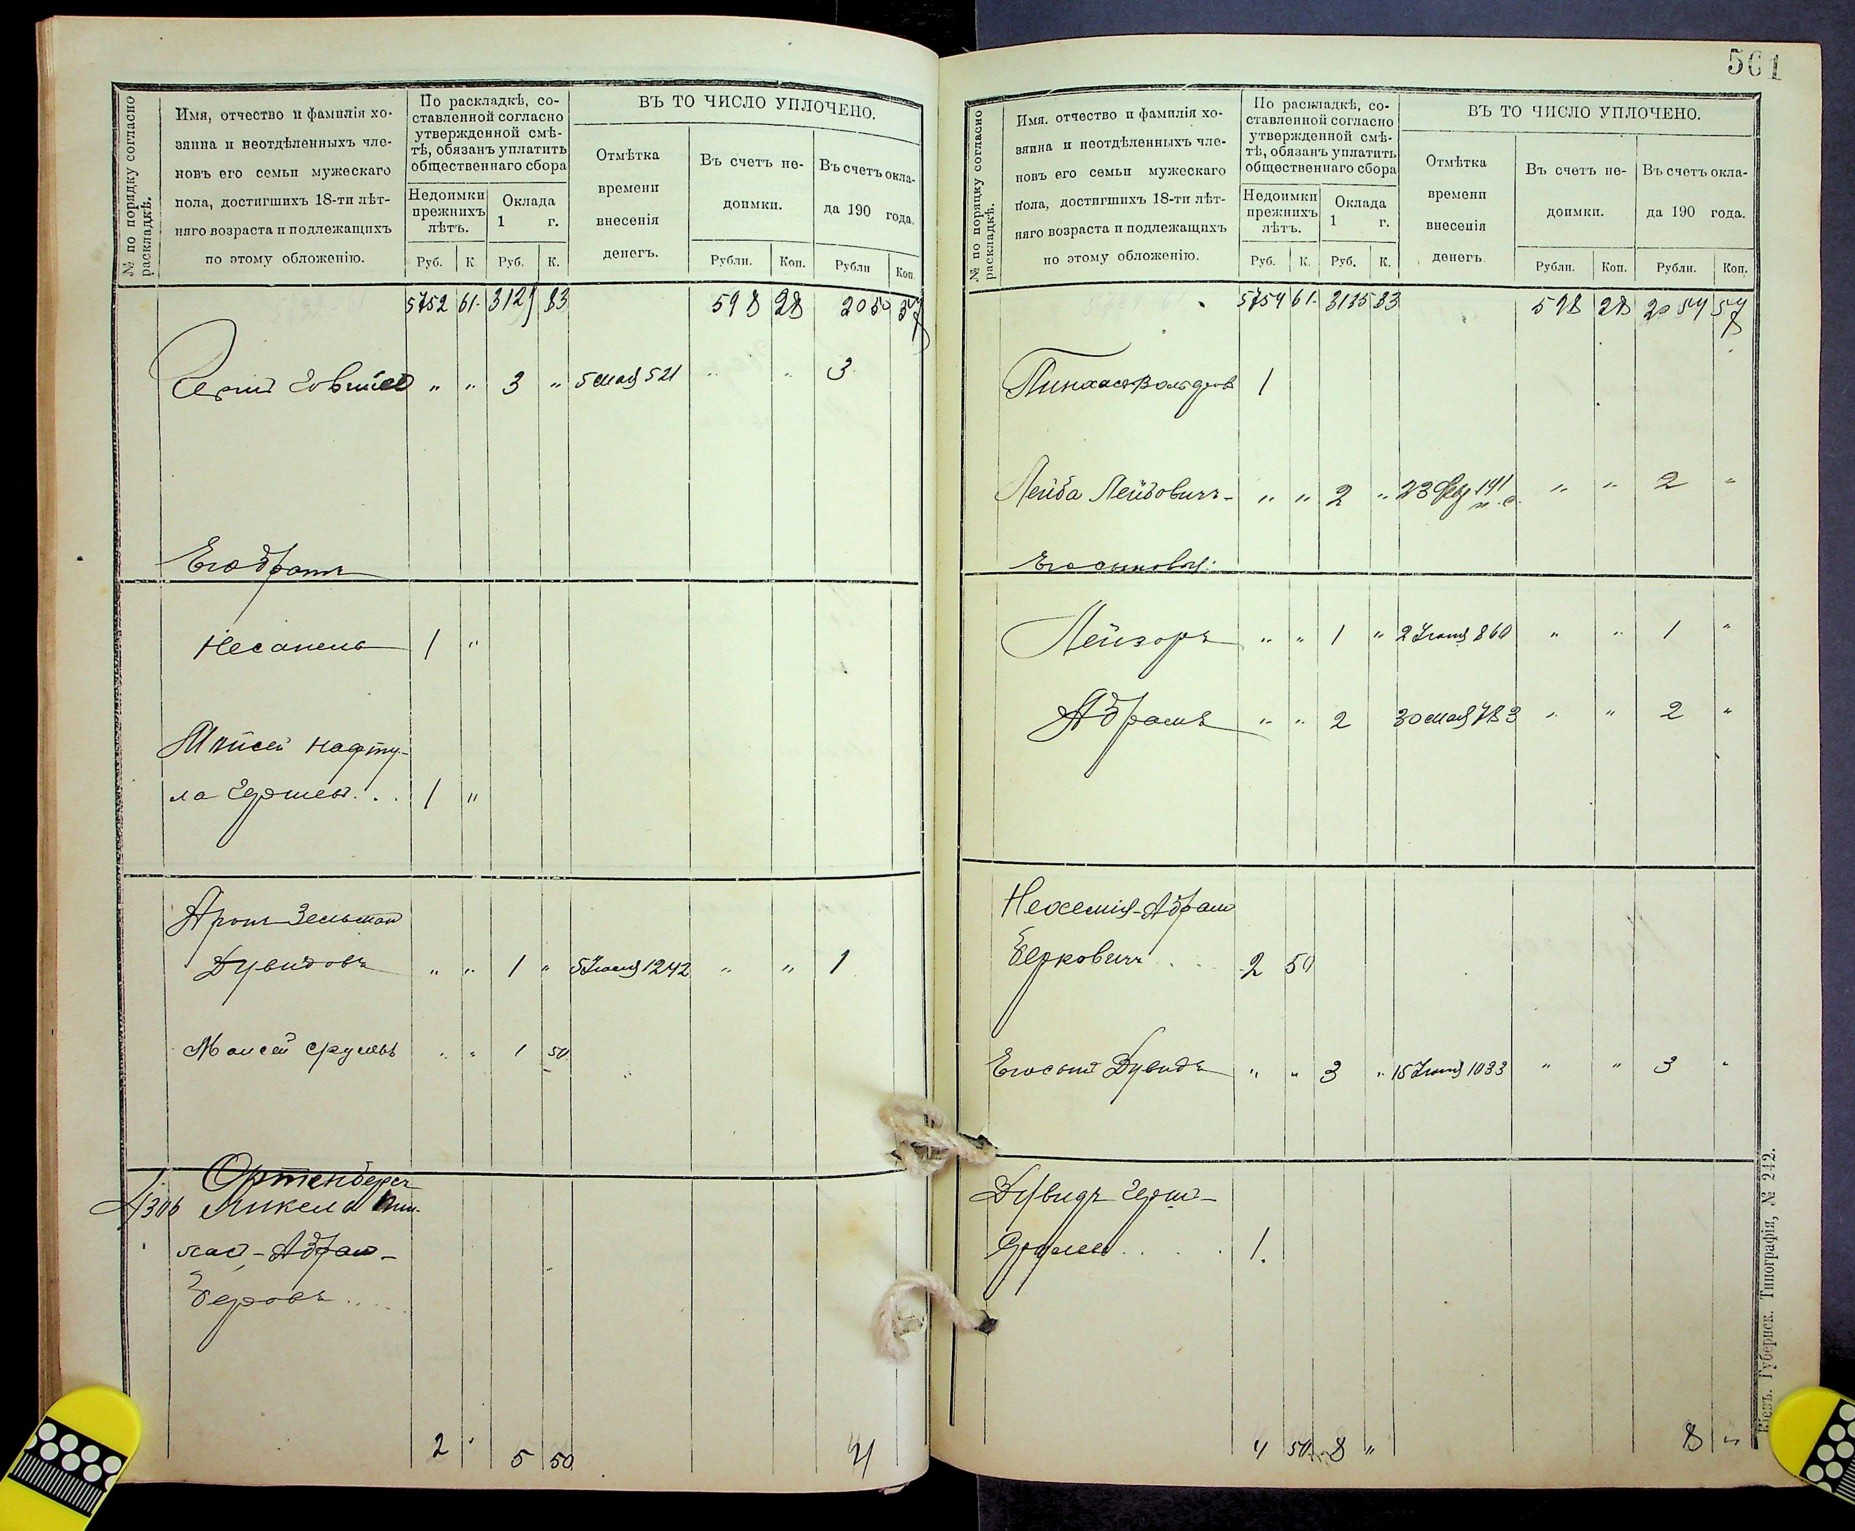 № по порядку согласно раскладкѣ.
Имя, отчество и фамилія хо-
зяина и неотдѣленныхъ чле-
новъ его семьи мужескаго
пола, достигшихъ 18-ти лѣт-
няго возраста и подлежащихъ
по этому обложенію.
По раскладкѣ, со-
ставленной согласно
утвержденной смѣ-
тѣ, обязанъ уплатить
общественнаго сбора
Недоимки прежнихъ лѣтъ.
Оклада 1 г.
Руб. К. Руб. К.
ВЪ ТО ЧИСЛО УПЛОЧЕНО.
Отмѣтка
времени
внесенія
денегъ.
Въ счетъ не-
доимки.
Въ счетъ окла-
да 190 года.
Рубли. Коп. Рубли Коп.
5752 61 83 598 28 2050 57
" " 3 " 5 мая 521 " " 3
Его братъ
1 "
Мойсей Нафту-
ла Гершев. . . 1 "
Аронъ Зельман
Дувидовъ " " 1 " 5 Іюня 1242 " " 1
Моисей Срулевъ " " 1 50
Ортенбергъ
1306 Микель Пин-
хас-Абрам-
Беровъ ....
2 " 5 50 4
561
№ по порядку согласно раскладкѣ.
Имя, отчество и фамилія хо-
зяина и неотдѣленныхъ чле-
новъ его семьи мужескаго
пола, достигшихъ 18-ти лѣт-
няго возраста и подлежащихъ
по этому обложенію.
По раскладкѣ, со-
ставленной согласно
утвержденной смѣ-
тѣ, обязанъ уплатить
общественнаго сбора
Недоимки прежнихъ лѣтъ.
Оклада 1 г.
Руб. К. Руб. К.
ВЪ ТО ЧИСЛО УПЛОЧЕНО.
Отмѣтка
времени
внесенія
денегъ
Въ счетъ не-
доимки.
Въ счетъ окла-
да 190 года.
Рубли. Коп. Рубли. Коп.
5754 61 3135 83 598 28 2054 57
Пинхас Вольфов 1
Лейба Лейбовичъ - " " 2 " 23 фев 191 " " 2 "
Его сыновья:
Лейзоръ " " 1 " 2 Іюня 860 " " 1 "
Абрамъ " " 2 30 мая 783 " " 2 "
Нехемія-Абрам
Берковичъ . . 2 50
Его сынъ Дувидъ " " 3 " 15 Іюня 1033 " " 3 "
Дувидъ Герш-
Срулев . . . . 1.
4 50 8 " 8 "
Кіевъ. Губернск. Типографія, № 242.